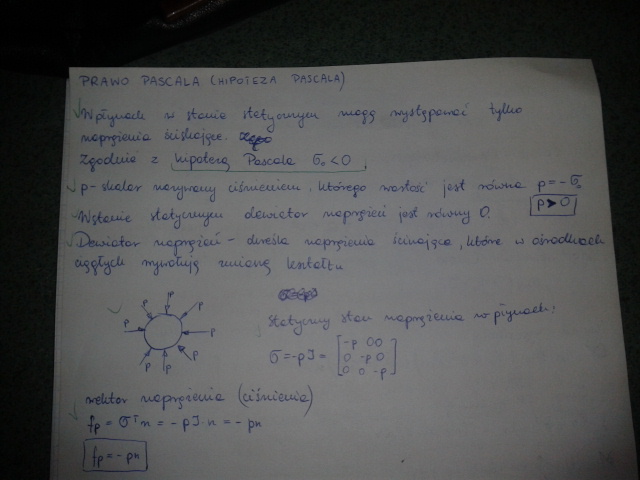 PRAWO PASCALA (HIPOTEZA PASCALA)
W płynach w stanie statycznym mogą występować tylko
naprężenia ściskające.
Zgodnie z hipotezą Pascala σ₀ < 0
p - skalar nazywany ciśnieniem, którego wartość jest równa p = - σ₀
p > 0
W stanie statycznym dewiator naprężeń jest równy 0.
Dewiator naprężeń - określa naprężenia ścinające, które w ośrodkach
ciągłych wywołują zmianę kształtu
p p p p p p p p
Statyczny stan naprężenia w płynach:
σ = -pI = [-p 0 0
0 -p 0
0 0 -p]
wektor naprężenia (ciśnienia)
fp = σᵀn = -pI·n = -pn
fp = -pn